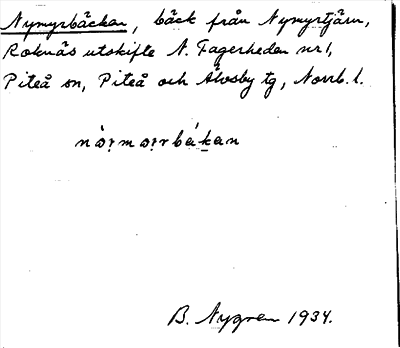 Nymyrbäcken, bäck från Nymyrtjärn,
Roknäs utskifte N. Fagerheden nr 1,
Piteå sn, Piteå och Älvsby tg, Norrb. l.
B. Nygren 1934.